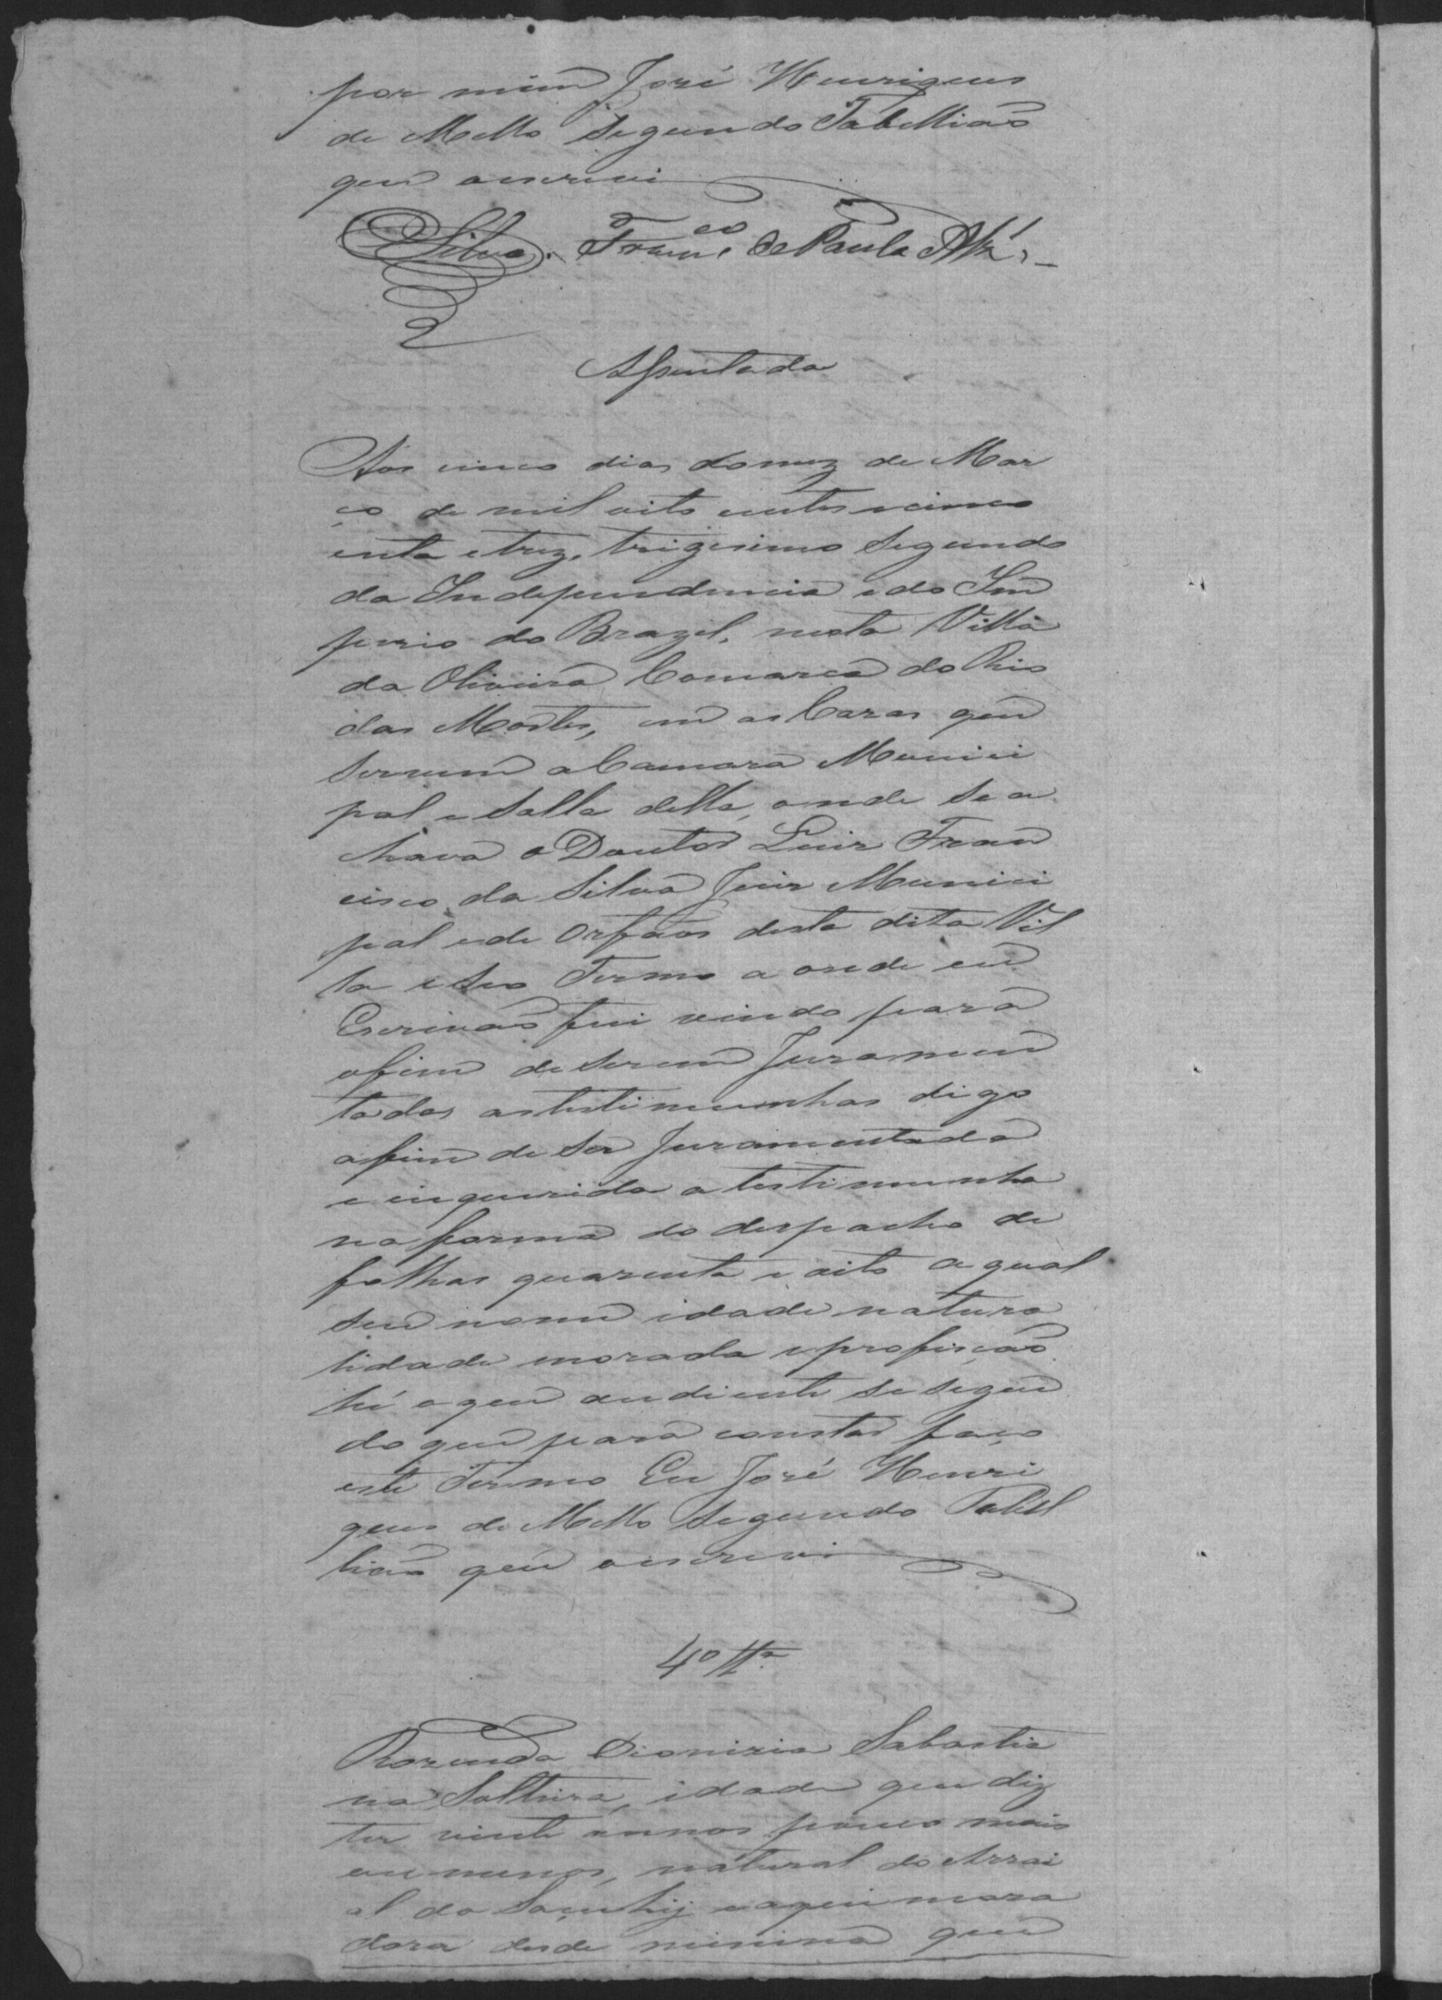 por mim José Henriques
de Mello Segundo Tabellião
que o escrevi
Silva. Franco. de Paula
Assentada
Aos cinco dias do mez de Mar
ço de mil oito centos e cinco
enta e trez, trigesimo segundo
da Independencia e do Im
perio do Brazil, nesta Villa
da Oliveira Comarca do Rio
das Mortes, em as Cazas que
servem a Camara Munici
pal e Salla della, onde se a
chava o Doutor Luiz Fran
cisco da Silva Juiz Munici
pal e de Orfãos desta dita Vil
la e seo Termo a onde eu
Escrivão fui vindo para
o fim de serem Juramen
tadas as testimunhas digo
afim de ser Juramentada
e inquirida a testimunha
na forma do despacho de
folhas quarenta e oito a qual
seu nome idade natura
lidade morada e profição
hé o que ao diente se segue
do que para constar faço
este Termo Eu José Henri
ques de Mello Segundo Tabel
lião que o escrevi
4º Ttª
Rozenda Dionizia Sabastia
na Solteira, idade que diz
ter vinte annos pouco mais
ou menos, natural do Arrai
al do e aqui mora
dora desde minina que